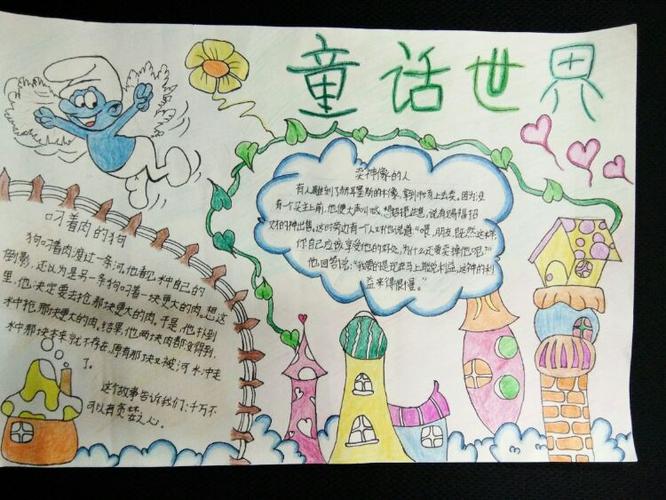 童话世界
叼着肉的狗
狗叼着肉渡过一条河,他看见水中自己的
倒影,还以为是另一条狗叼着一块更大的肉。想到这
里,他决定要去抢那块更大的肉。于是,他扑到
水中抢那块更大的肉。结果,他两块肉都没得到,
水中那块本来就不存在,原有那块又被河水冲走
了。
这个故事告诉我们:千万不
可以有贪婪之心。
卖神像的人
有人雕刻了赫耳墨斯的木像,拿到市场上去卖。因为没
有一个买主上前,他便大声叫喊,想招揽生意,说有赐福招
财的神出售。这时旁边有一个人对他说道:“喂,朋友,既然这样,
你自己应该享受他的好处,为什么还要卖掉他呢?”
他回答说:“我要的是现在马上能兑利益,这神的利
益来得很慢。”